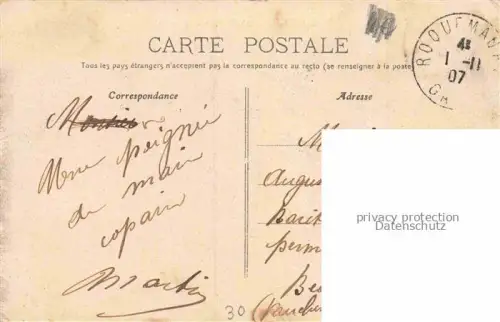 CARTE POSTALE
Tous les pays étrangers n'acceptent pas la correspondance au recto (se renseigner à la poste
Correspondance
Adresse
ROQUEMAU
1 -11
07
Une poignée
de main
copain
Martin
M
Augus
perm
Be
(Vauclu
30
privacy protection
Datenschutz